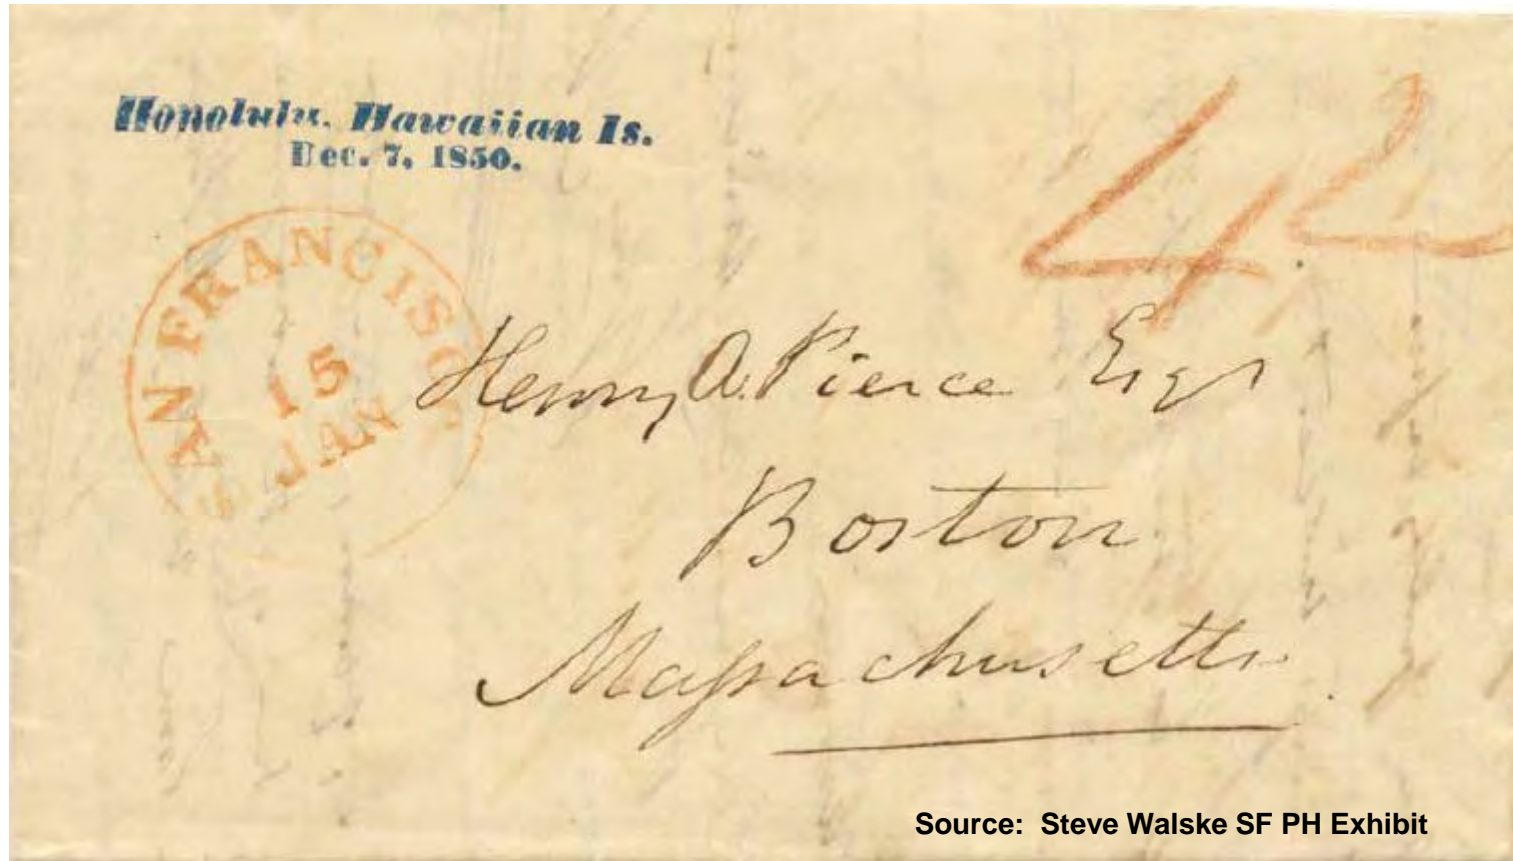 Honolulu, Hawaiian Is.
Dec. 7, 1850.
42
SAN FRANCISCO
15
JAN
Henry A. Pierce Esqr
Boston
Massachusetts
Source: Steve Walske SF PH Exhibit